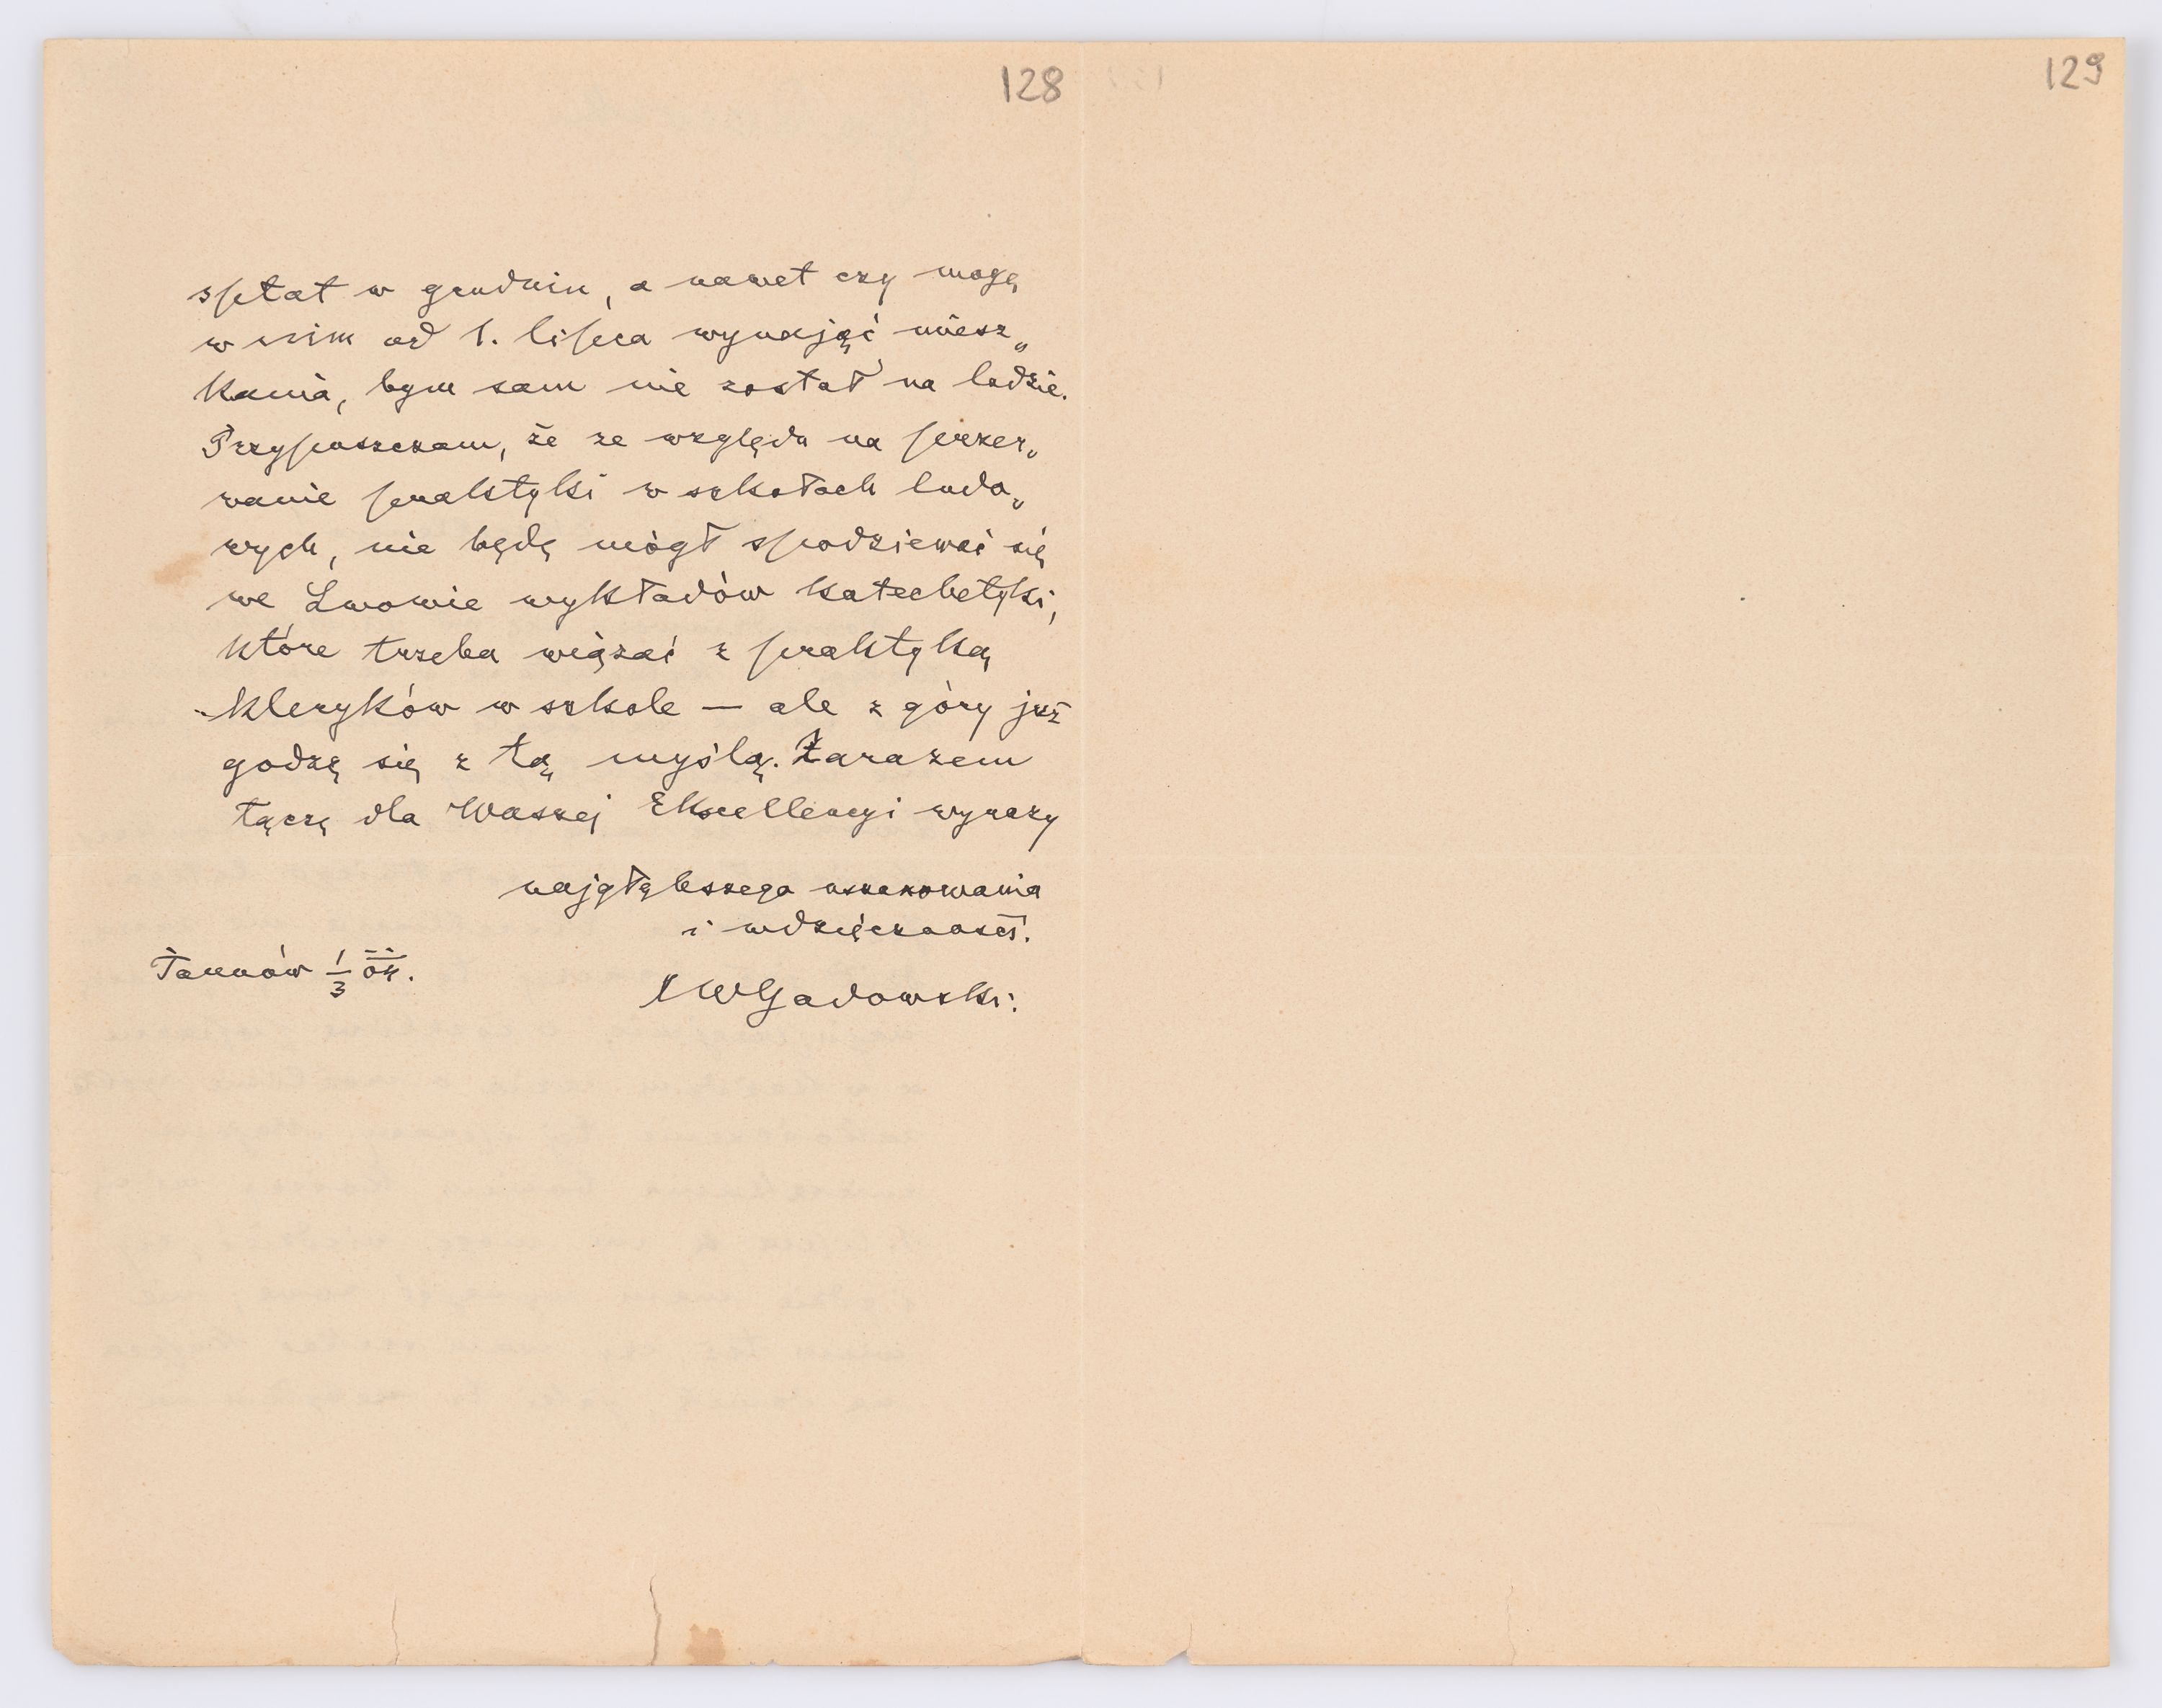 128
129
spłat w grudniu, a nawet czy mogę
w nim od 1. lipca wynająć miesz„
kania, bym sam nie został na lodzie.
Przypuszczam, że ze względu na przer„
wanie praktyki w szkołach ludo„
wych, nie będę mógł spodziewać się
we Lwowie wykładów katechetyki,
które trzeba wiązać z praktyką
kleryków w szkole — ale z góry już
godzę się z tą myślą. Zarazem
łączę dla Waszej Ekscellencyi wyrazy
najgłębszego uszanowania
i wdzięczności.
Tarnów 1/3
XWGadowski.